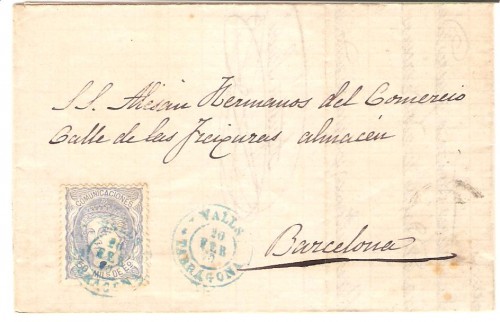 S.S. Alesan Hermanos del Comercio
Calle de las Freixuras almacén
Barcelona
COMUNICACIONES
50 MILS DE E.
VALLS
20
FEB
TARRAGONA